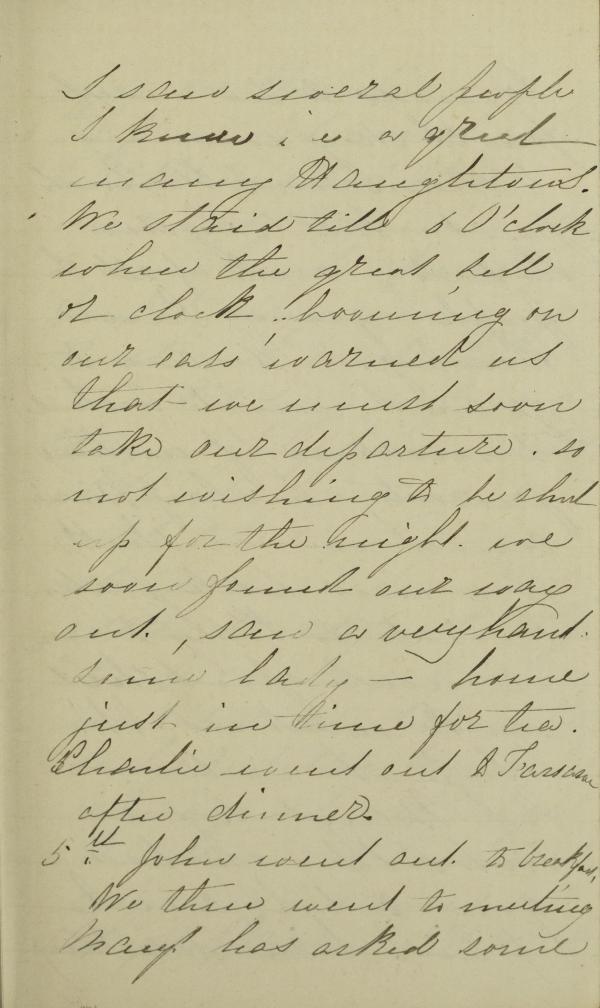 I saw several people
I know i e a great
many Haughtons.
We staid till 6 O'clock
when the great bell
or clock booming on
our ears warned us
that we must soon
take our departure. so
not wishing to be shut
up for the night. we
soon found our way
out, saw a very hand
some lady — home
just in time for tea.
Charlie went out
after dinner.
5th John went out to breakfast,
We then went to meeting
Mary has asked some